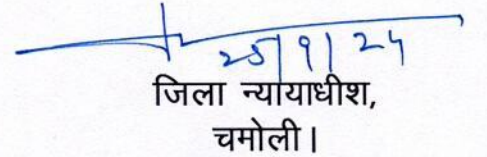 25/9/24
जिला न्यायाधीश,
चमोली।